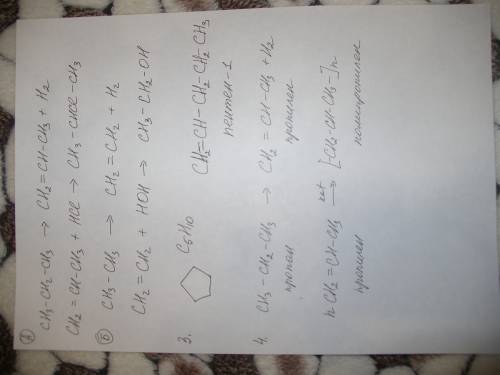 а)
CH3-CH2-CH3 → CH2=CH-CH3 + H2
CH2=CH-CH3 + HCl → CH3-CHCl-CH3
б) CH3-CH3 → CH2=CH2 + H2
CH2=CH2 + HOH → CH3-CH2-OH
3. C5H10 CH2=CH-CH2-CH2-CH3
пентен-1
4. CH3-CH2-CH3 → CH2=CH-CH3 + H2
пропан пропилен
nCH2=CH-CH3 kat → [-CH2-CH-CH3-]n
пропилен полипропилен